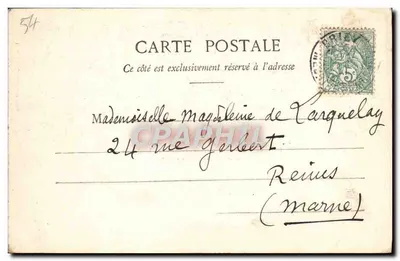 54
CARTE POSTALE
Ce côté est exclusivement réservé à l'adresse
Mademoiselle Magdeleine de Larquelay
24 rue Gerbert
Reims
(Marne)